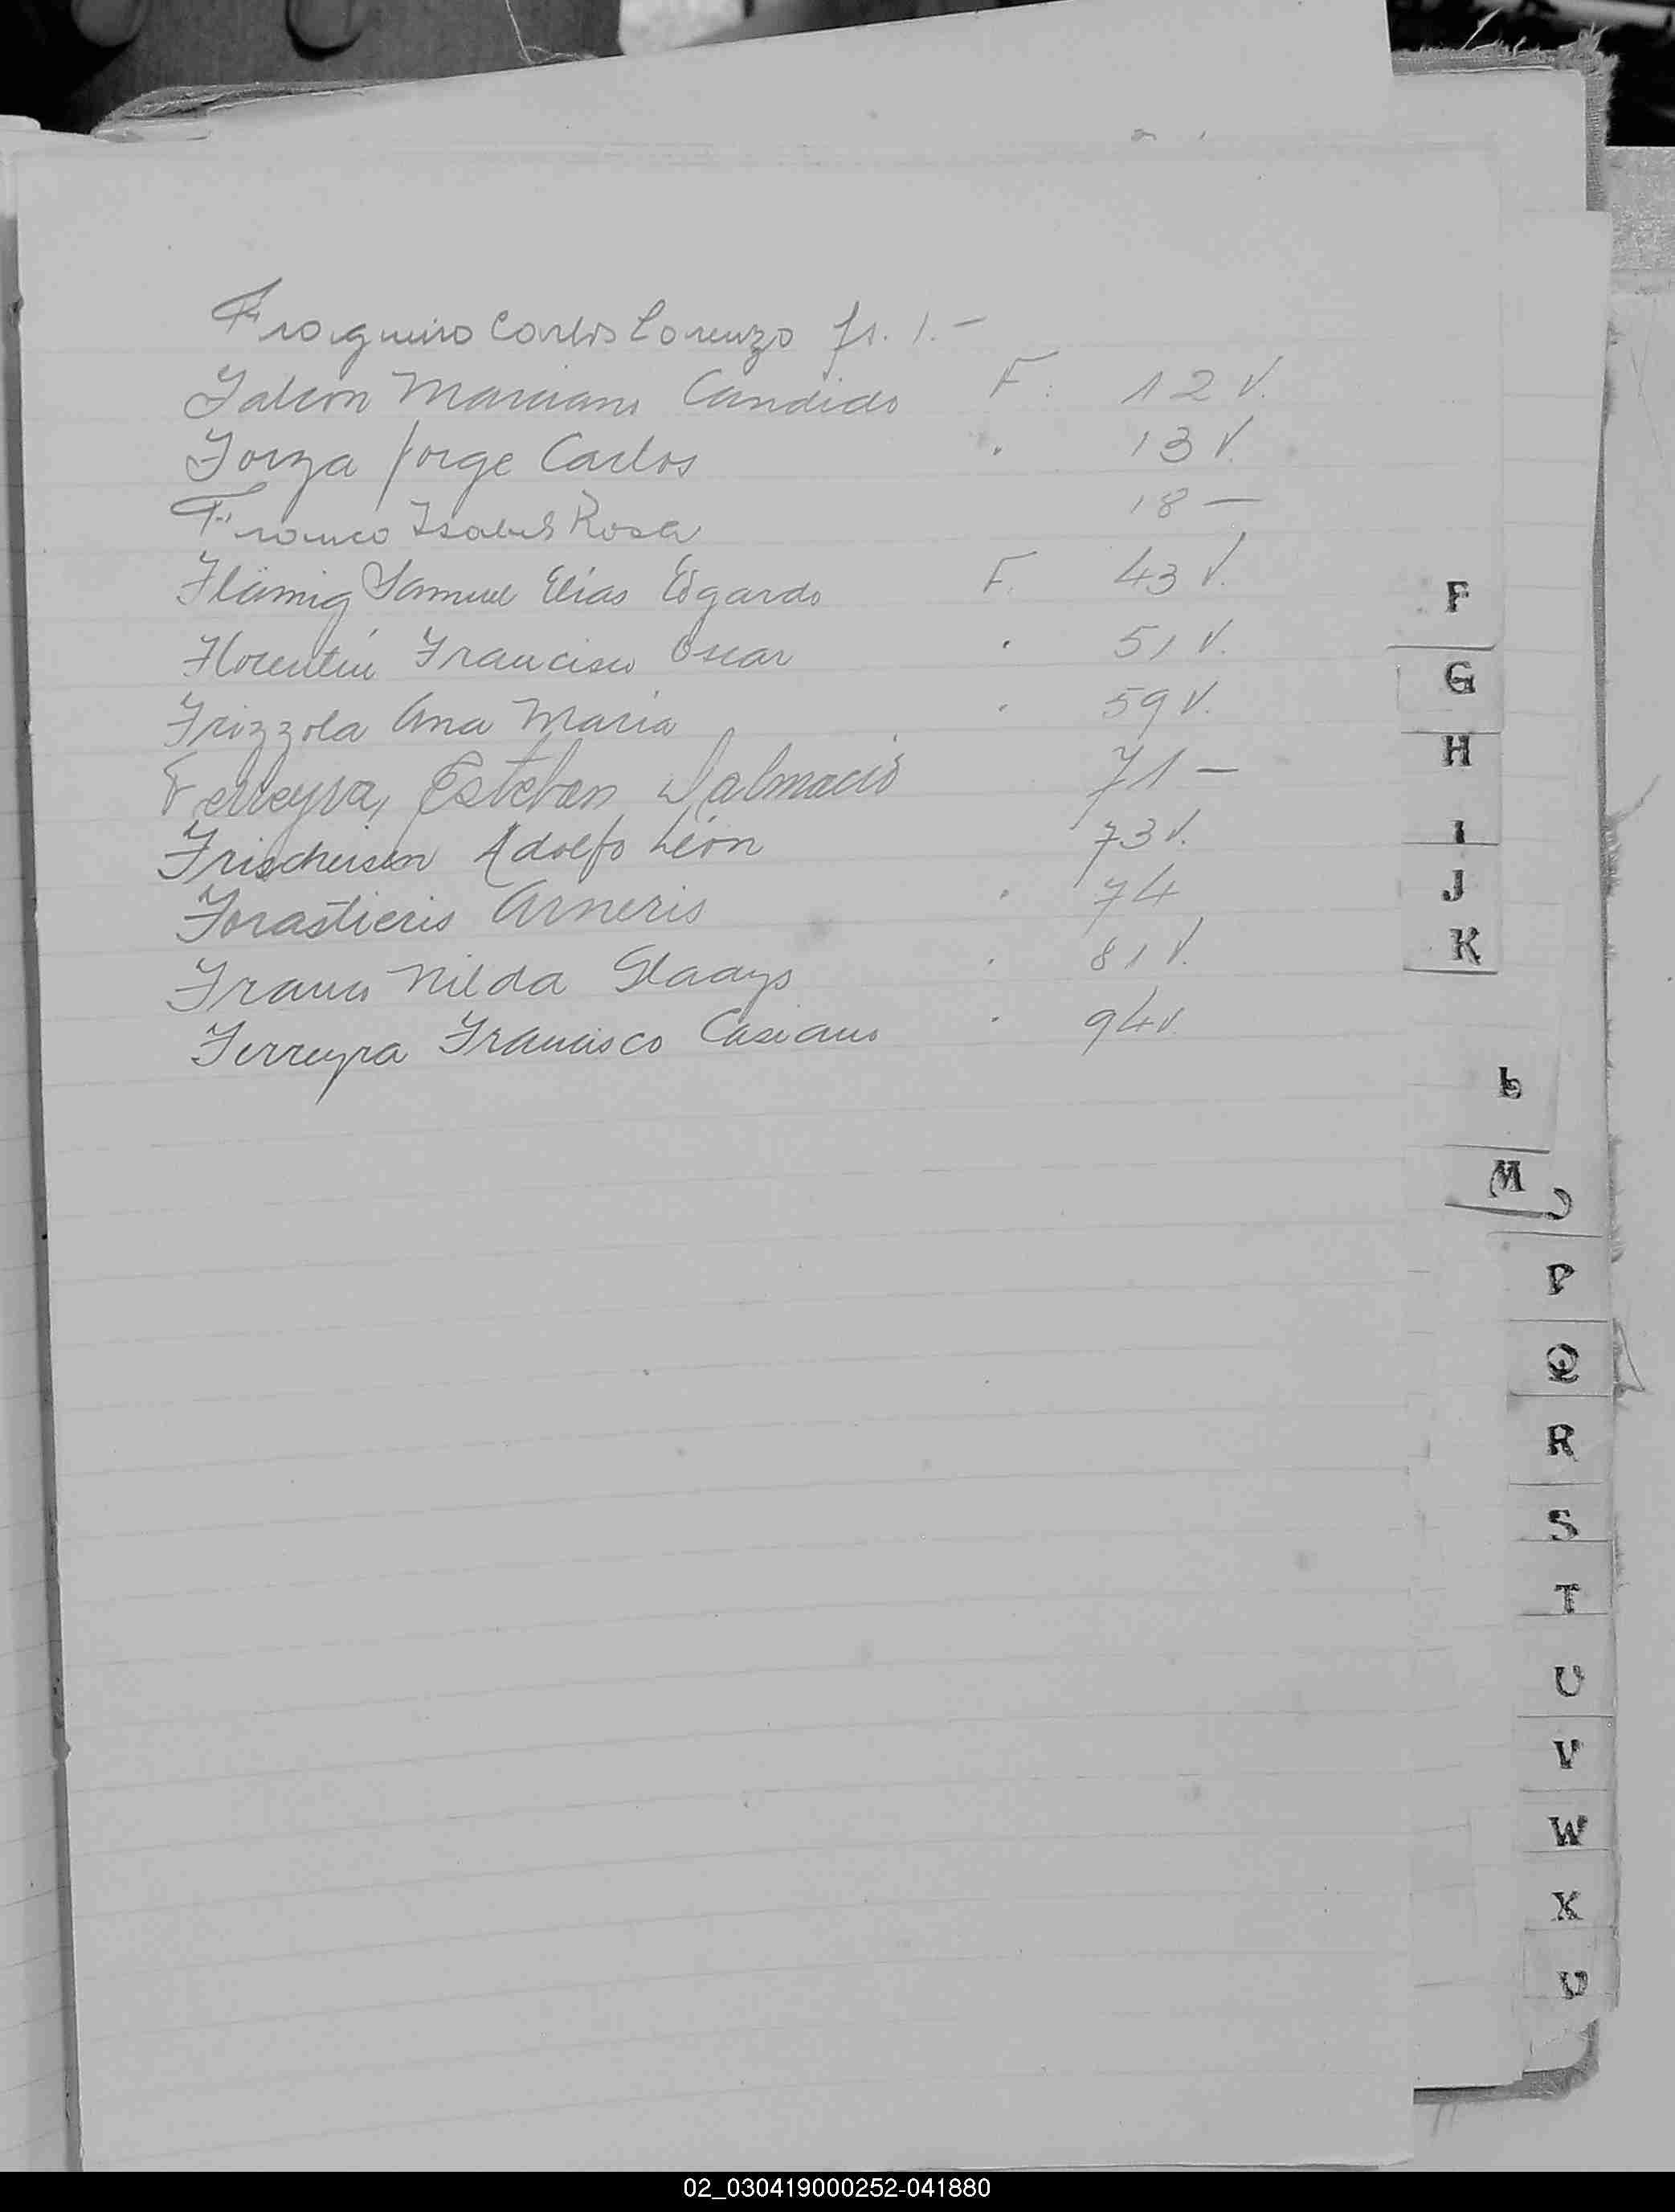 Froigueiro Carlos Lorenzo fs. 1. –
Falcon Marciano Candido F. 12 v.
Forza Jorge Carlos " 13 v.
Franco Isabel Rosa 18 –
Flämig Samuel Elías Edgardo F. 43 v.
Florentín Francisco Oscar " 51 v.
Frizzola Ana María " 59 v.
Ferreyra, Esteban Dalmacio 71 –
Frischeisen Adolfo León 73 v.
Forastieris Arneris " 74
Franco Nilda Gladys " 81 v.
Ferreyra Francisco Casiano " 94 v.
F
G
H
I
J
K
L
M
O
P
Q
R
S
T
U
V
W
X
02_030419000252-041880